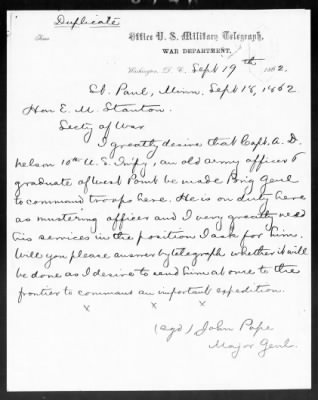 Duplicate
Office U. S. Military Telegraph,
WAR DEPARTMENT,
Washington, D. C. Sept 19th 1862.
St. Paul, Minn. Sept 18, 1862
Hon E. M. Stanton.
Secty of War
I greatly desire that Capt. A. D.
Nelson 10th U. S. Infy, an old army officer &
graduate of West Point be made Brig Genl
to command troops here. He is on duty here
as mustering officer and I very greatly need
his services in the position I ask for him.
Will you please answer by telegraph whether it will
be done as I desire to send him at once to the
frontier to command an important expedition.
x x x
(sgd) John Pope
Major Genl.